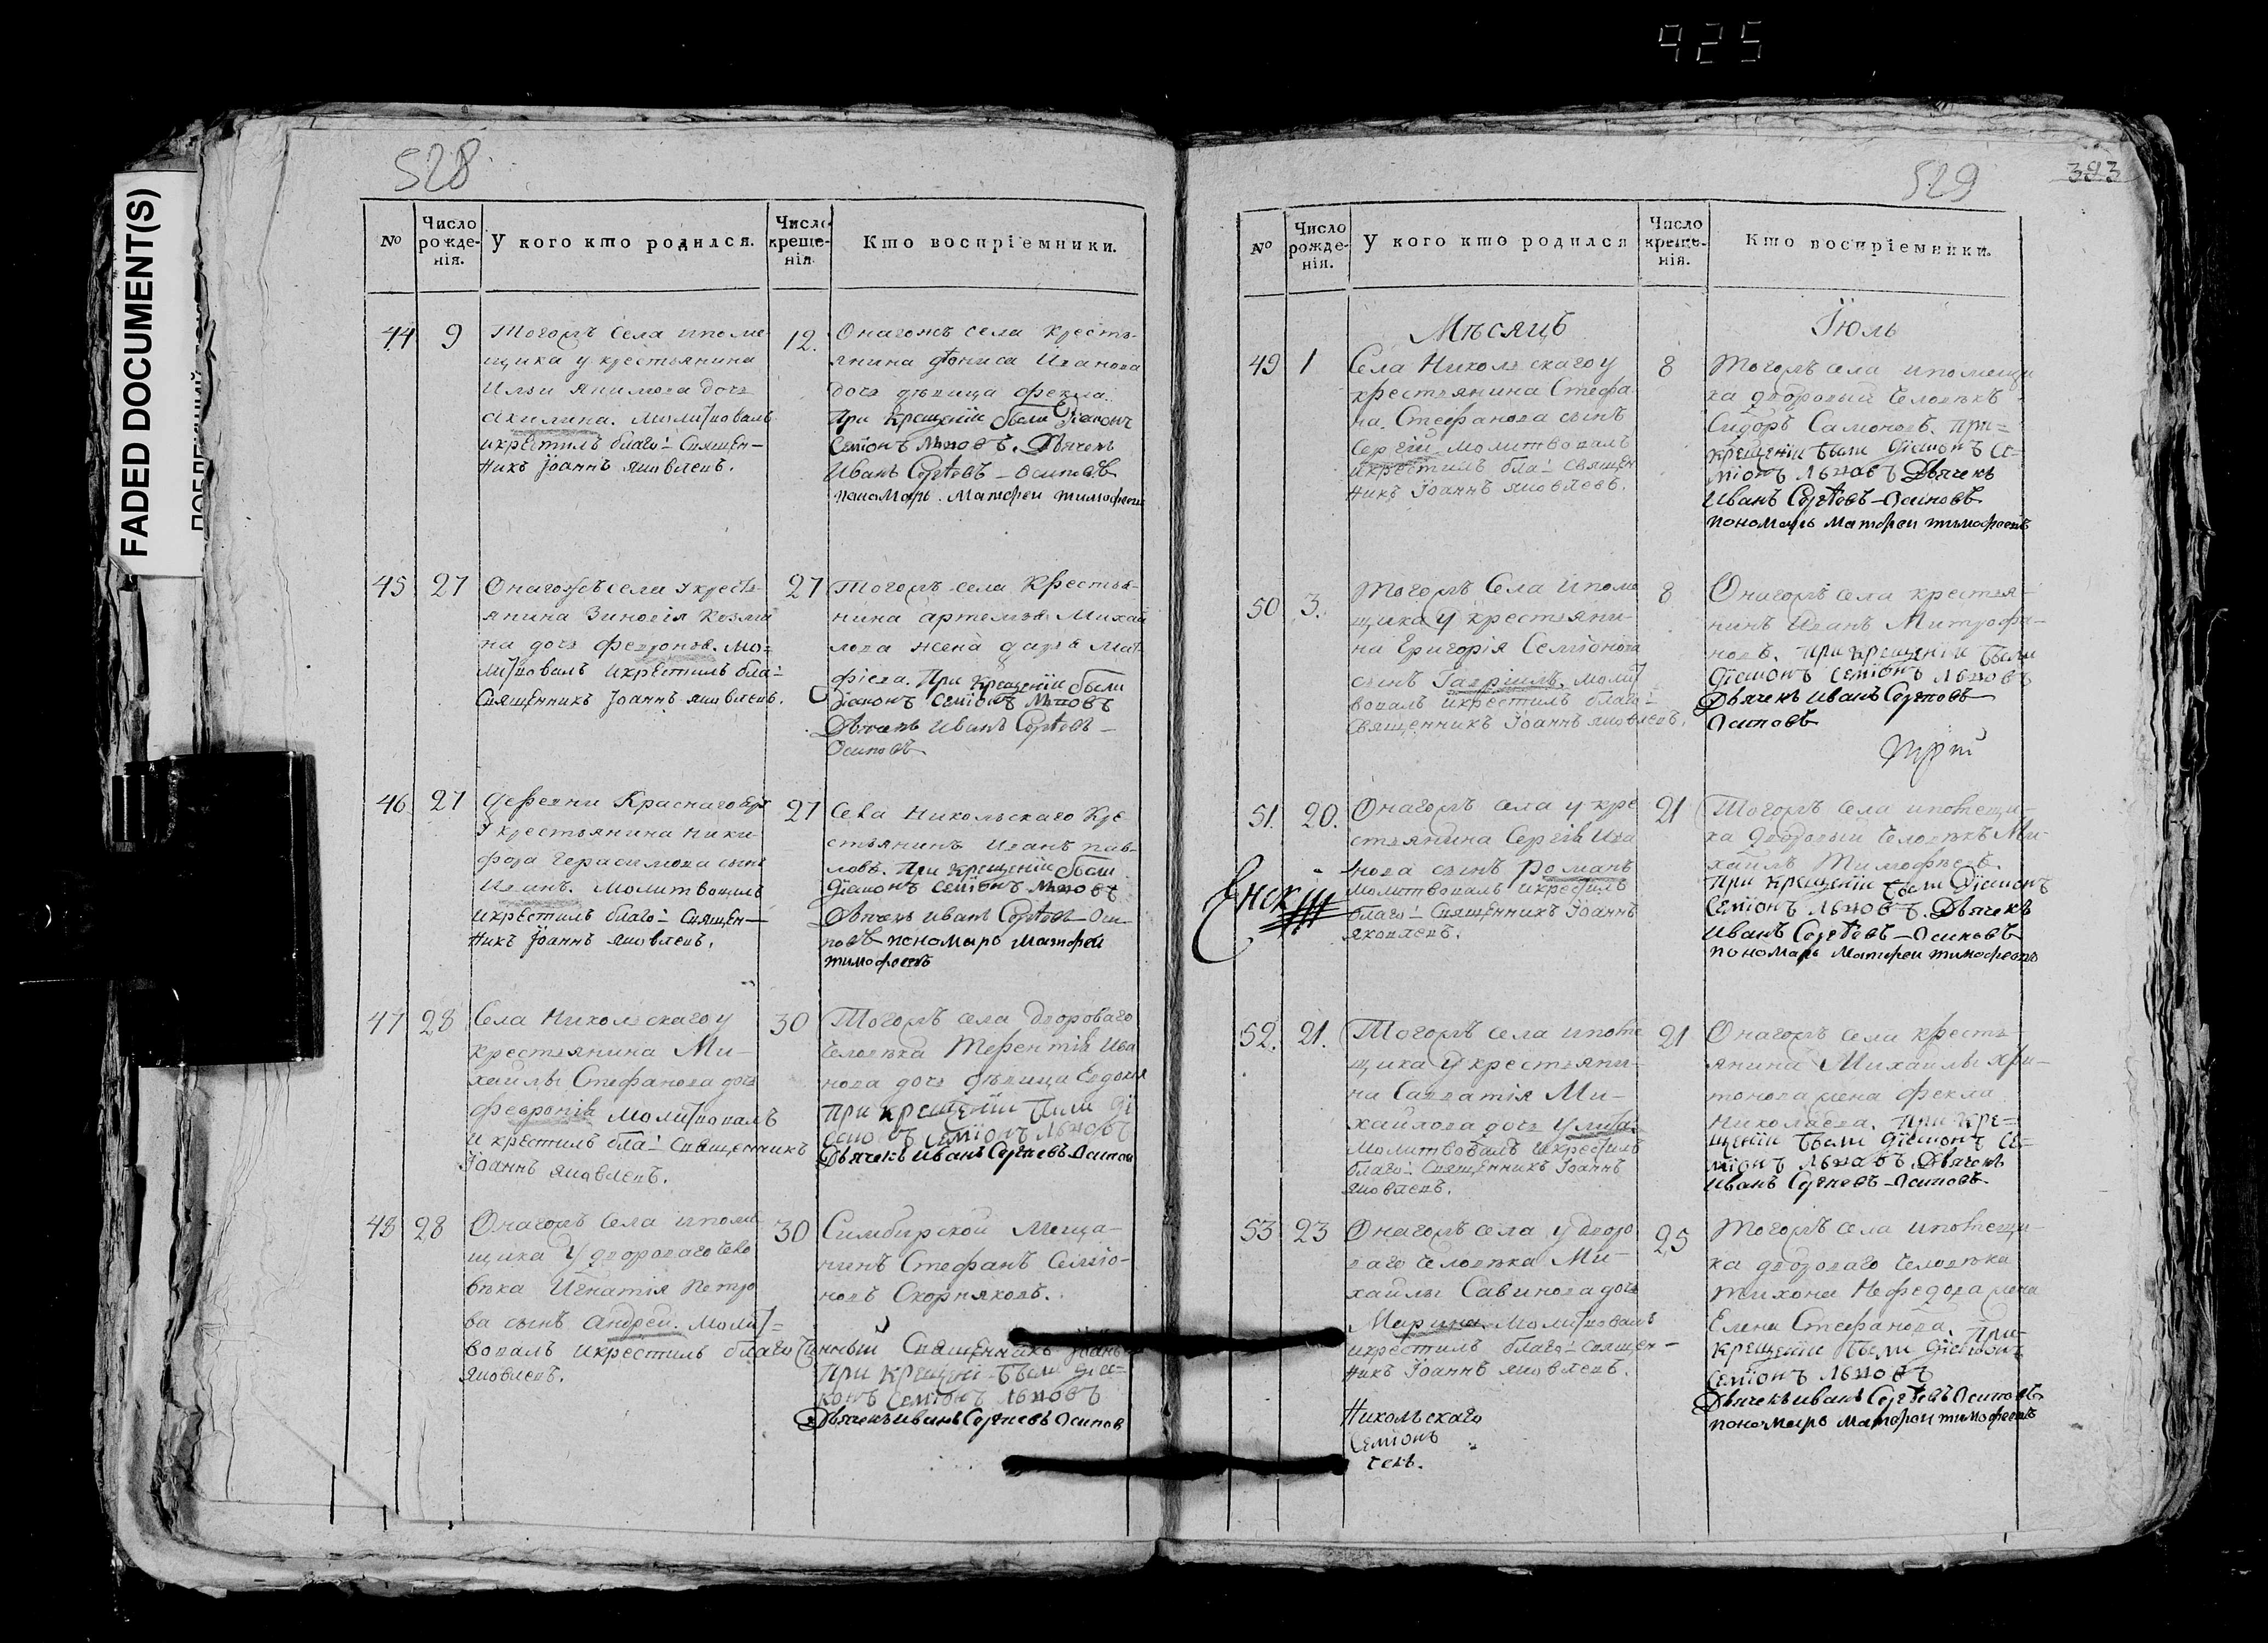 925
FADED DOCUMENT(S)
528
№
Число рожде-нія.
У кого кто родился.
Число креще-нія.
Кто воспріемники.
44
9
Тогожъ села ипоме
щика у крестьянина
Ильи Якимова дочь
Акилина. молитвовалъ
икрестилъ благо: Священ-
никъ Іоаннъ Яковлевъ.
12.
Онагожъ села кресть-
янина Дениса Иванова
дочь дѣвица Фекла.
При крещеніи были Діаконъ
Семіонъ Львовъ. Дьячекъ
Иванъ Сергѣевъ-Осиповъ
пономарь Матфеи тимофеевъ
45
27
Онагожъ села у кресть-
янина Зиновія Козми
на дочь Феврон. мо-
литвовалъ икрестилъ бла:
Священникъ Іоаннъ Яковлевъ.
27
Тогожъ села Крестья-
нина Михай
лова жена Дарья Мат
фіева. При крещеніи были
Діаконъ Семіонъ Львовъ
Дьячекъ Иванъ Сергѣевъ-
Осиповъ
46
27
Деревни Краснаго Яру
У крестьянина Ники-
фора Герасимова сынъ
Иванъ. Молитвовалъ
икрестилъ благо: Священ-
никъ Іоаннъ Яковлевъ.
27
Села Никольскаго Кре
стьянинъ Иванъ Пав-
ловъ. При крещеніи были
Діаконъ Семіонъ Львовъ
Дьячекъ Иванъ Сергѣевъ-Оси-
повъ-пономарь Матфеи
тимофеевъ
47
28
Села Никольскаго у
крестьянина Ми-
хаилы Стефанова дочь
Февронія молитвовалъ
и крестилъ бла: Священникъ
Іоаннъ Яковлевъ.
30
Тогожъ села двороваго
человѣка Терентія Ива
нова дочь дѣвица Евдокія
при крещеніи были Ді
аконъ Семіонъ Львовъ
Дьячекъ Иванъ Сергѣевъ Осипов
48
28
Онагожъ села ипоме
щика У двороваго чело
вѣка Игнатія Петро
ва сынъ Андреи. Молит-
вовалъ икрестилъ благочинный Священникъ Іоаннъ
Яковлевъ.
30
Симбирской Меща-
нинъ Стефанъ Семіо-
новъ Скорняковъ.
При крещеніи были Діа-
конъ Семіонъ Львовъ
Дьячекъ Иванъ Сергѣевъ Осипов
529
393
№
Число рожде-нія.
У кого кто родился
Число креще-нія.
Кто воспріемники.
Мѣсяцъ
Іюль
49
1
Села Никольскаго у
крестьянина Стефа-
на Стефанова сынъ
Сергіи молитвовалъ
икрестилъ бла: Священ
никъ Іоаннъ Яковлевъ.
8
Тогожъ села ипомещи
ка дворовый человѣкъ
Сидоръ Самоновъ. При-
крещеніи были Діаконъ Се-
міонъ Львовъ Дьячекъ
Иванъ Сергѣевъ-Осиповъ
пономарь Матфеи тимофеевъ
50
3.
Тогожъ Села ипоме
щика У крестьяни-
на Григорія Семіонова
сынъ Гавріилъ. молит
вовалъ икрестилъ благо:
Священникъ Іоаннъ Яковлевъ.
8
Онагожъ села крестья-
нинъ Иванъ Митрофа-
новъ. При крещеніи были
Діаконъ Семіонъ Львовъ
Дьячекъ Иванъ Сергѣевъ
Осиповъ
51.
20.
Онагожъ села у кре
стьянина Сергѣя Ива
нова сынъ Романъ
молитвовалъ икрестилъ
благо: Священникъ Іоаннъ
Яковлевъ.
21
Тогожъ села ипомещи-
ка дворовый человѣкъ Ми-
хаилъ Тимофѣевъ.
При крещеніи были Діаконъ
Семіонъ Львовъ. Дьячекъ
Иванъ Сергѣевъ-Осиповъ
пономарь Матфеи тимофеевъ
52.
21.
Тогожъ села ипоме
щика У крестьяни-
на Савватія Ми-
хайлова дочь Улита
молитвовалъ икрестилъ
благо: Священникъ Іоаннъ
Яковлевъ.
21
Онагожъ села кресть-
янина Михаилы Хари-
тонова жена Фекла
Николаева. При кре-
щеніи были Діаконъ Се-
міонъ Львовъ Дьячекъ
Иванъ Сергѣевъ-Осиповъ.
53
23
Онагожъ села у дворо
ваго человѣка Ми-
хаилы Савинова дочь
Марина молитвовалъ
икрестилъ благо: Священ-
никъ Іоаннъ Яковлевъ.
25
Тогожъ села ипомещи-
ка двороваго человѣка
Тихона Нефедова жена
Елена Стефанова. При-
крещеніи были Діаконъ
Семіонъ Львовъ
Дьячекъ Иванъ Сергѣевъ Осиповъ
пономарь Матфеи тимофеевъ
Никольскаго
Семіонъ